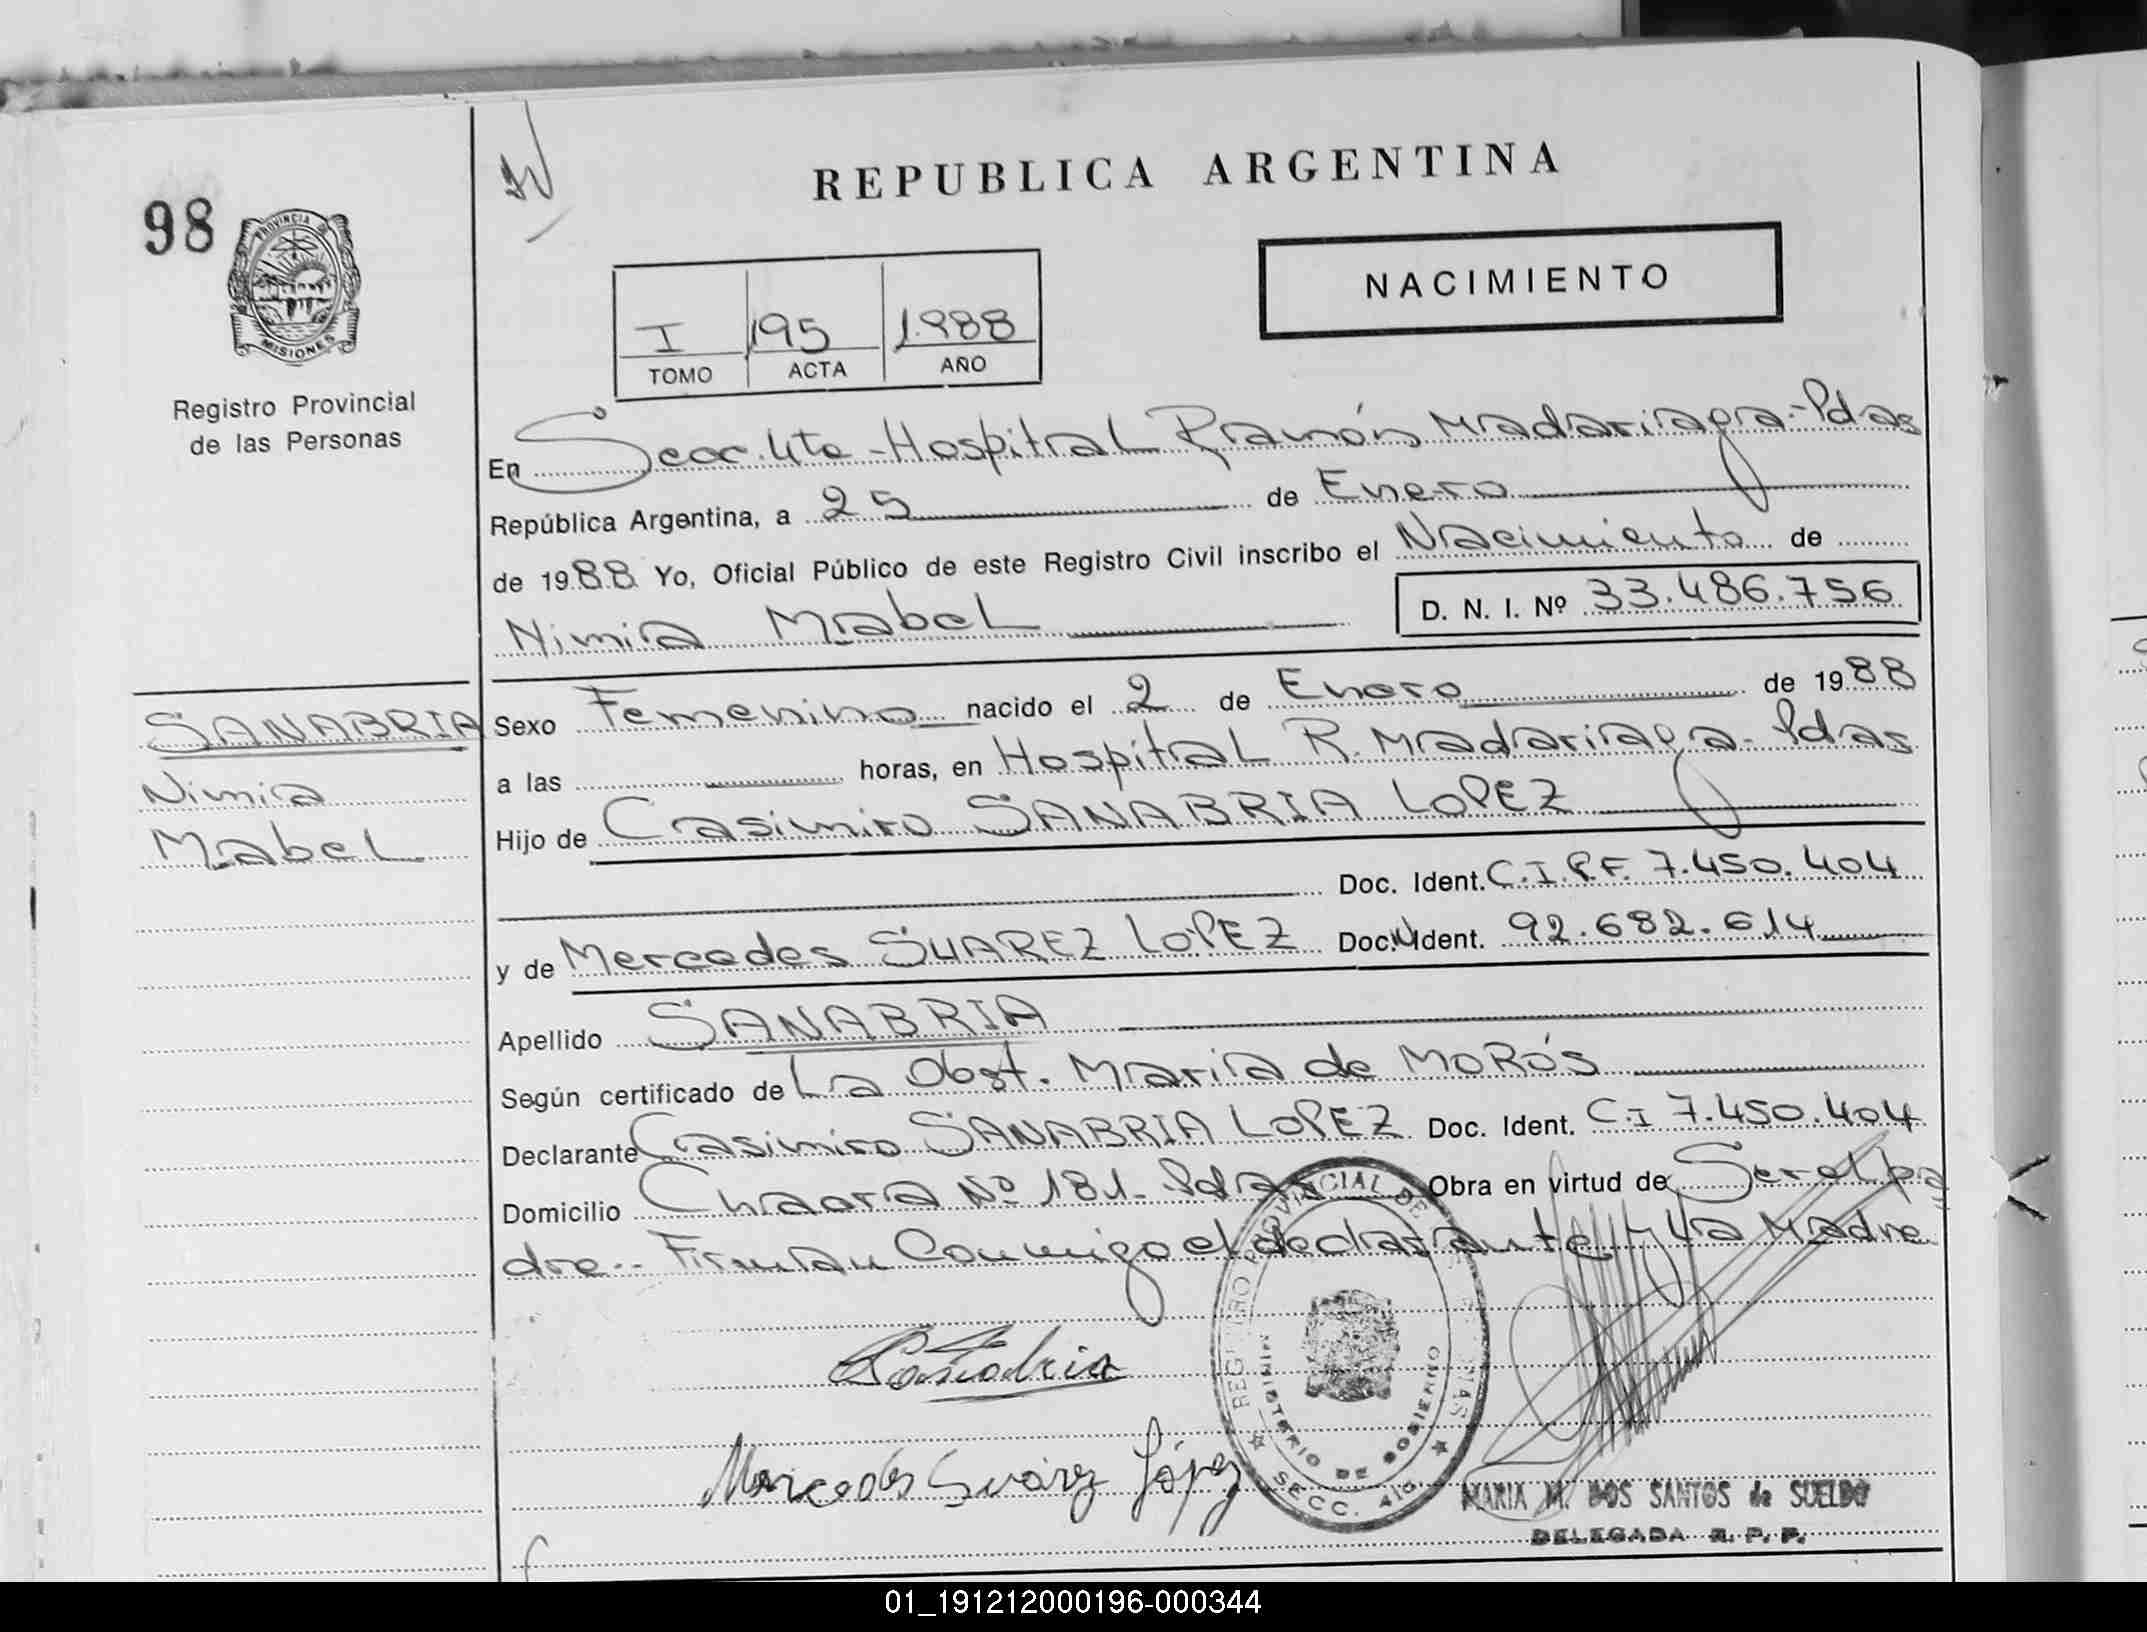 98
PROVINCIA DE
MISIONES
Registro Provincial
de las Personas
REPUBLICA ARGENTINA
NACIMIENTO
I 195 1.988
TOMO ACTA AÑO
En Secc. 4ta - Hospital Ramón Madariaga - Pdas
República Argentina, a 25 de Enero
de 1988 Yo, Oficial Público de este Registro Civil inscribo el Nacimiento de
Nimia Mabel D. N. I. Nº 33.486.756
SANABRIA
Nimia
Mabel
Sexo Femenino nacido el 2 de Enero de 1988
a las horas, en Hospital R. Madariaga - Pdas
Hijo de Casimiro SANABRIA LOPEZ
Doc. Ident. C.I.P.F. 7.450.404
y de Mercedes SUAREZ LOPEZ Doc. Ident. 92.682.614
Apellido SANABRIA
Según certificado de La Obst. Maria de MOROS
Declarante Casimiro SANABRIA LOPEZ Doc. Ident. C.I 7.450.404
Domicilio Chacra Nº 181 - Pdas Obra en virtud de Ser el pa
dre.. Firman Conmigo el declarante y La Madre
REGISTRO PROVINCIAL DE LAS PERSONAS
MINISTERIO DE GOBIERNO
SECC. 4ta
Mercedes Suárez López
MARIA M. DOS SANTOS de SUELDO
DELEGADA R. P. P.
01_191212000196-000344